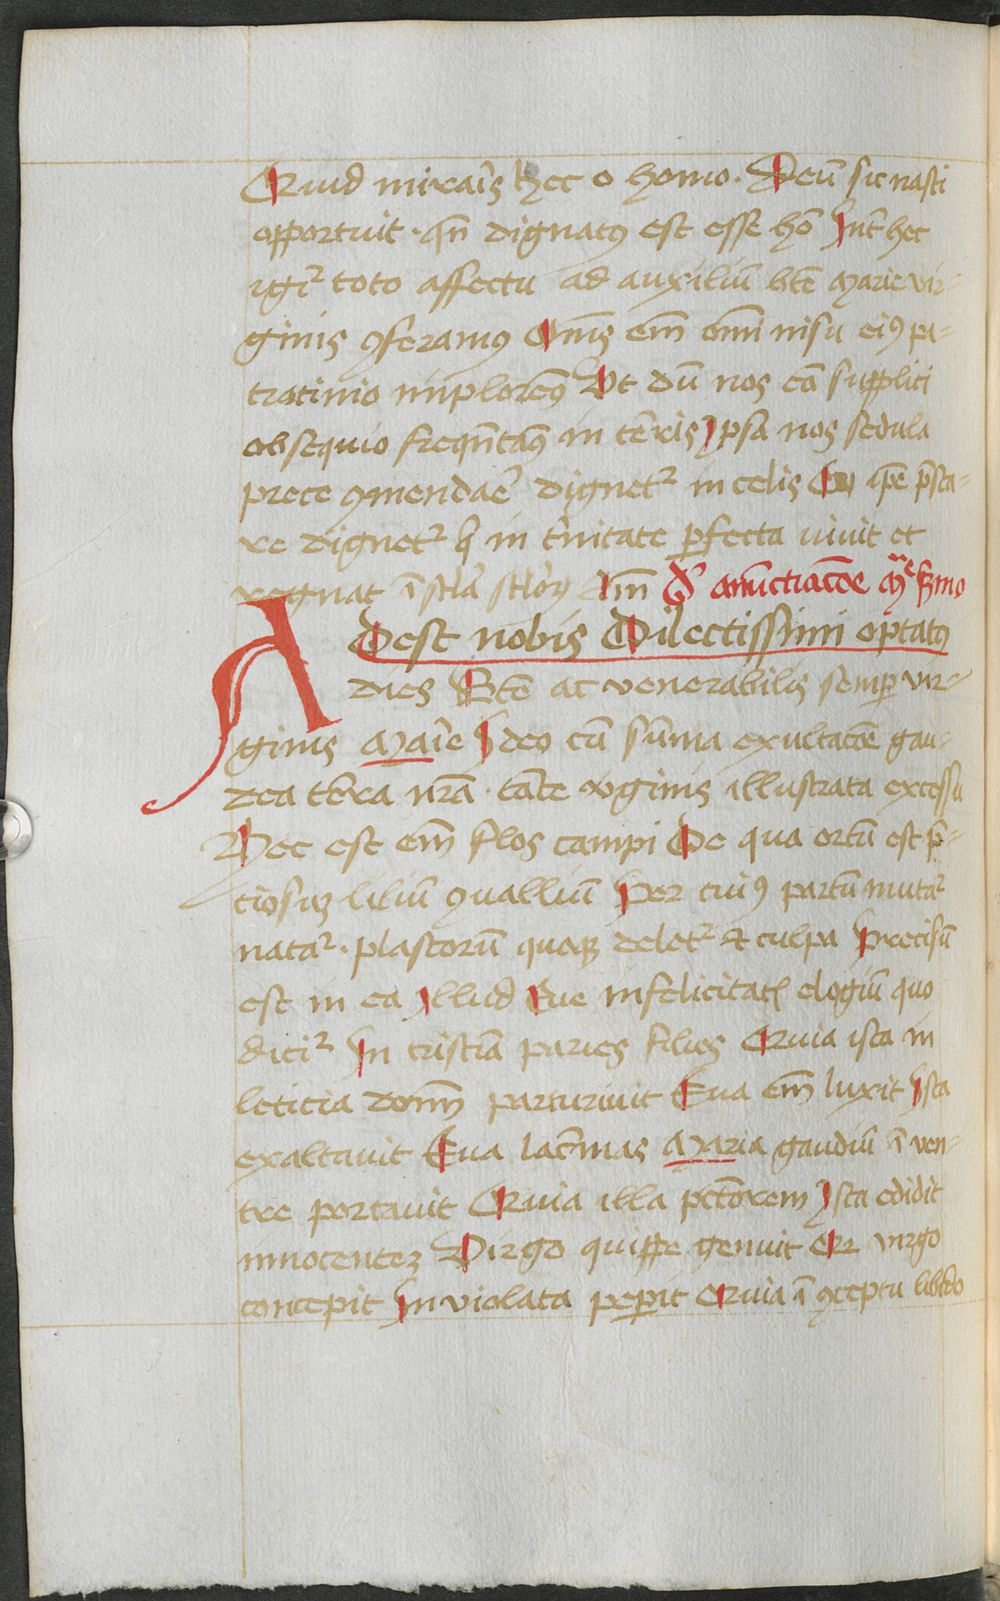 Quid miraris hec o homo. Deū sic nasci
opportuit. qn̄ dignatꝰ est esse hō Int̄ hec
igit᷑ toto affectu ad auxiliū btē Marie vir-
ginis ꝯferamꝰ Om̄s em̄ omī nisu eiꝰ pa-
trocinio imploremꝰ Vt dū nos eā supplici
obsequio freqn̄tamꝰ in terris Ipsa nos sedula
prece ꝯmendare dignet᷑ in celis ip̄e p̄sta-
re dignet᷑ q̄ in t̓nitate ꝑfecta viuit et
regnat ī scl̄a scl̄oꝝ Am̄ De anūctiacōe Mͤ Sermo
Adest nobis Dilectissimi optatꝰ
dies Btē ac venerabilis semꝑ vir-
ginis Marie Ideo cū sūma exultacōe gau-
dea terra nr̄a. tante v̓ginis illustrata excessu
Hec est em̄ flos campi De qua ortū est p̄-
ciosuꝫ liliū ꝯualliū Per cuiꝰ partū mutat᷑
natā᷑. plastorū quoqꝫ delet᷑ et culpa Precisū
est in ea Illud Eue infelicitatꝭ elogiū quo
dicit᷑ In tristicia paries filios Quia ista in
leticia domī parturiuit Eua em̄ luxit Ista
exaltauit Eua lac̓mas Maria gaudiū ī ven-
tre portauit Quia illa pctōrem Ista edidit
innocenteꝫ Virgo quippe genuit Qr virgo
concepit Inuiolata peꝑit Quia ī ꝯceptu libido